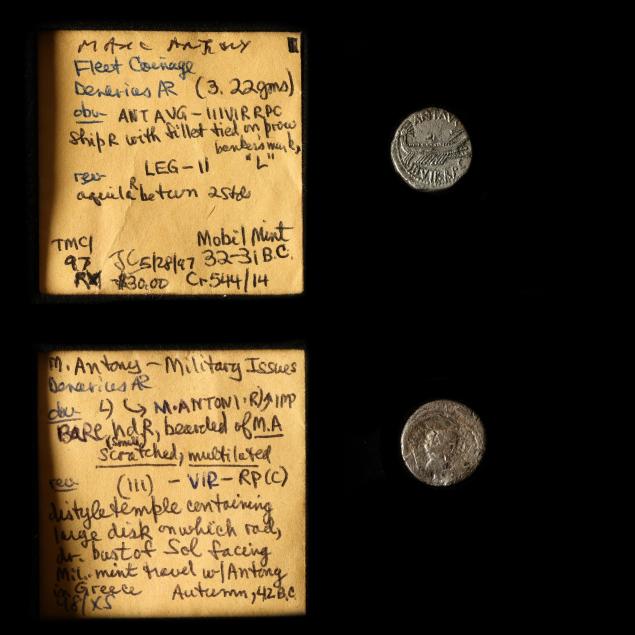 MARC ANTONY
Fleet Coinage
Denarius AR (3.22gms)
obv- ANT AVG - IIIVIR RPC
Ship R with fillet tied on prow
bankers mark,
LEG-II "L"
rev
aquila R betwn 2 Stds
TMC/ Mobil Mint
97 JC 5/28/97 32-31 B.C.
$30.00 Cr.544/14
ANT AVG
IIIVIR RP
M. Antony - Military Issues
Denarius AR
obv L) M.ANTONI. R) IMP
BARE hd R, bearded of M.A
(small)
scratched, mutilated
rev (III) - VIR - RP(C)
distyle temple containing
large disk on which rad,
dr. bust of Sol facing
Mil. mint travel w/Antony
in Greece Autumn, 42 B.C.
98/XS